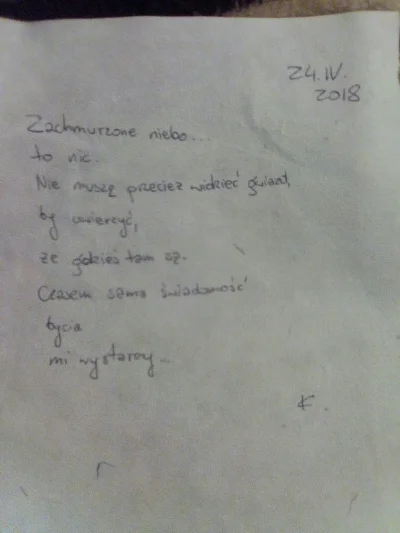 24.IV.
2018
Zachmurzone niebo...
to nic.
Nie muszę przecież widzieć gwiazd,
by uwierzyć,
że gdzieś tam są.
Czasem sama świadomość
bycia
mi wystarcy...
K.